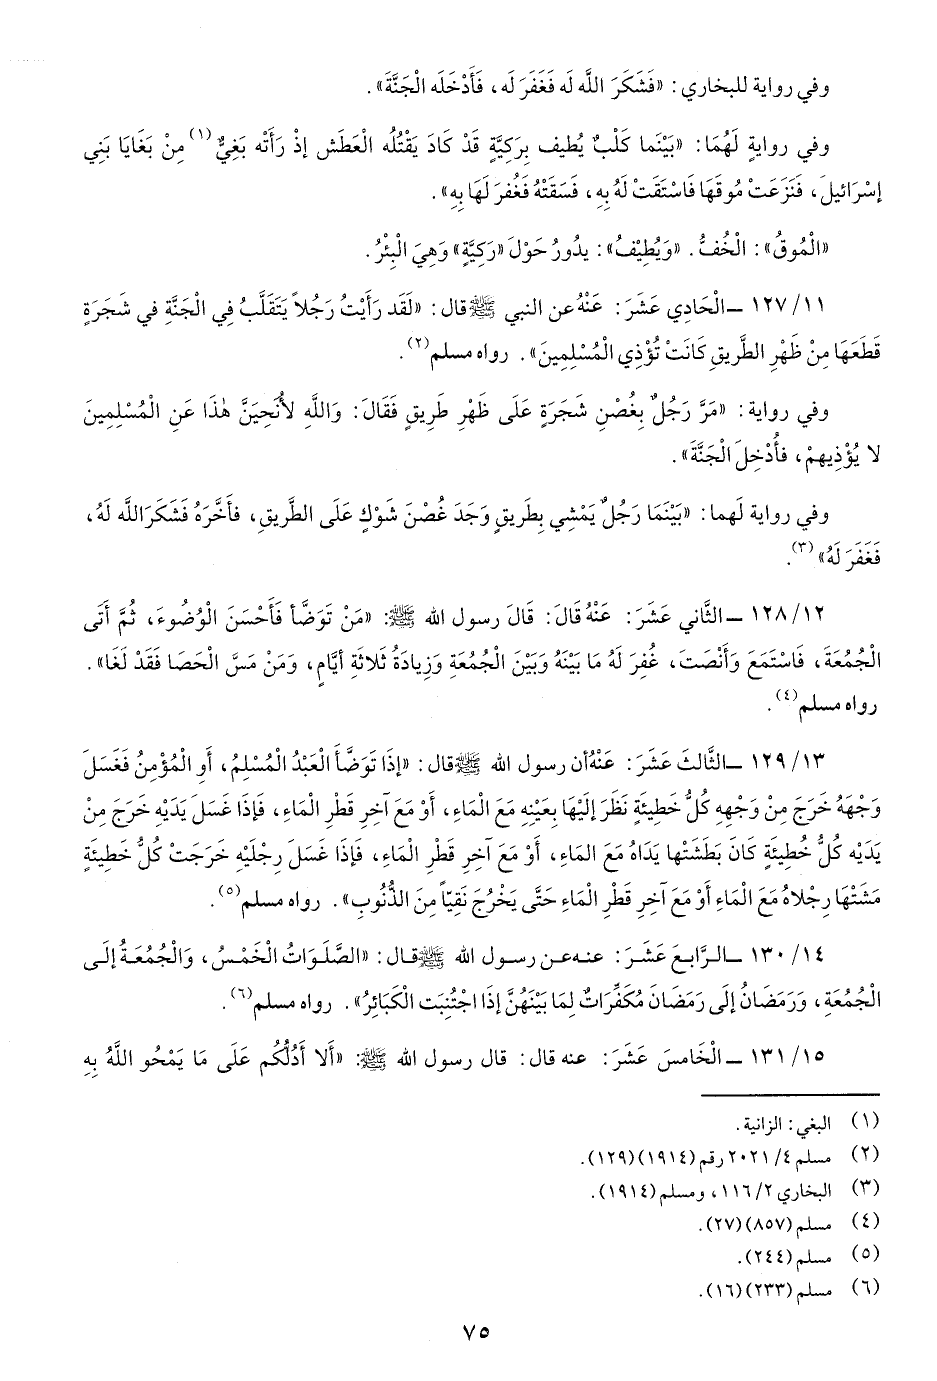 وفي رواية للبخاري: «فَشَكَرَ اللَّه لَه فَغَفَرَ لَه، فَأَدْخَلَه الْجَنَّةَ».
وفي روايةٍ لَهُمَا: «بَيْنَما كَلْبٌ يُطيف بِرَكِيَّةٍ قَدْ كَادَ يَقْتُلُه الْعَطَش إذْ رَأَتْه بَغِيٌّ(١) مِنْ بَغَايَا بَنِي
إسْرَائيلَ، فَنَزَعَتْ مُوقَهَا فَاسْتَقَتْ لَهُ بِهِ، فَسَقَتْهُ فَغُفِرَ لَهَا بِهِ».
«الْمُوقُ»: الْخُفُّ. «وَيُطِيْفُ»: يدُورُ حَوْلَ «رَكِيَّةٍ» وَهِيَ الْبِئْرُ.
١٢٧/١١ ـ الْحَادِي عَشَرَ: عَنْهُ عن النبي ﷺ قال: «لَقَد رَأَيْتُ رَجُلاً يَتَقَلَّبُ فِي الْجَنَّةِ في شَجَرَةٍ
قَطَعَهَا مِنْ ظَهْرِ الطَّرِيقِ كَانَتْ تُؤْذِي الْمُسْلِمِينَ». رواه مسلم(٢).
وفي رواية: «مَرَّ رَجُلٌ بِغُصْنِ شَجَرَةٍ عَلَى ظَهْرِ طَرِيقٍ فَقَالَ: وَاللَّهِ لأُنَحِيَنَّ هٰذَا عَنِ الْمُسْلِمِينَ
لا يُؤْذِيهِمْ، فأُدْخِلَ الْجَنَّةَ».
وفي رواية لَهما: «بَيْنَمَا رَجُلٌ يَمْشِي بِطَرِيقٍ وَجَدَ غُصْنَ شَوْكٍ عَلَى الطَّرِيقِ، فأَخَّرَهُ فَشَكَرَ اللَّه لَهُ،
فَغَفَرَ لَهُ»(٣).
١٢٨/١٢ ـ الثَّاني عَشَرَ: عَنْهُ قَالَ: قَالَ رسول الله ﷺ: «مَنْ تَوَضَّأَ فَأَحْسَنَ الْوُضُوءَ، ثُمَّ أَتَى
الْجُمُعَةَ، فَاسْتَمَعَ وَأَنْصَتَ، غُفِرَ لَهُ مَا بَيْنَهُ وَبَيْنَ الْجُمُعَةِ وَزِيادَةُ ثَلاثَةِ أَيَّامٍ، وَمَنْ مَسَّ الْحَصَا فَقَدْ لَغَا».
رواه مسلم(٤).
١٢٩/١٣ ـ الثَّالثَ عَشَرَ: عَنْهُ أن رسول الله ﷺ قال: «إذَا تَوَضَّأَ الْعَبْدُ الْمُسْلِمُ، أَوِ الْمُؤْمِنُ فَغَسَلَ
وَجْهَهُ خَرَجَ مِنْ وَجْهِهِ كُلُّ خَطِيئَةٍ نَظَرَ إلَيْهَا بِعَيْنِهِ مَعَ الْمَاءِ، أَوْ مَعَ آخِرِ قَطْرِ الْمَاءِ، فَإذَا غَسَلَ يَدَيْهِ خَرَجَ مِنْ
يَدَيْهِ كُلُّ خُطِيئَةٍ كَانَ بَطَشَتْهَا يَدَاهُ مَعَ الماءِ، أَوْ مَعَ آخِرِ قَطْرِ الْمَاءِ، فَإذَا غَسَلَ رِجْلَيْهِ خَرَجَتْ كُلُّ خَطِيئَةٍ
مَشَتْهَا رِجْلاهُ مَعَ الْمَاءِ أَوْ مَعَ آخِرِ قَطْرِ الْمَاءِ حَتَّى يَخْرُجَ نَقِيّاً مِنَ الذُّنُوبِ». رواه مسلم(٥).
١٣٠/١٤ ـ الرَّابعَ عَشَرَ: عنه عن رسول الله ﷺ قال: «الصَّلَوَاتُ الْخَمْسُ، وَالْجُمُعَةُ إلَى
الْجُمُعَةِ، وَرَمَضَانُ إلَى رَمَضَانَ مُكَفِّرَاتٌ لِمَا بَيْنَهُنَّ إذَا اجْتُنِبَت الْكَبَائِرُ». رواه مسلم(٦).
١٣١/١٥ ـ الْخَامسَ عَشَرَ: عنه قال: قال رسول الله ﷺ: «أَلا أَدُلُّكُم عَلَى مَا يَمْحُو اللَّهُ بِهِ
(١) البغي: الزانية.
(٢) مسلم ٢٠٢١/٤ رقم (١٩١٤)(١٢٩).
(٣) البخاري ١١٦/٢، ومسلم (١٩١٤).
(٤) مسلم (٨٥٧)(٢٧).
(٥) مسلم (٢٤٤).
(٦) مسلم (٢٣٣)(١٦).
٧٥